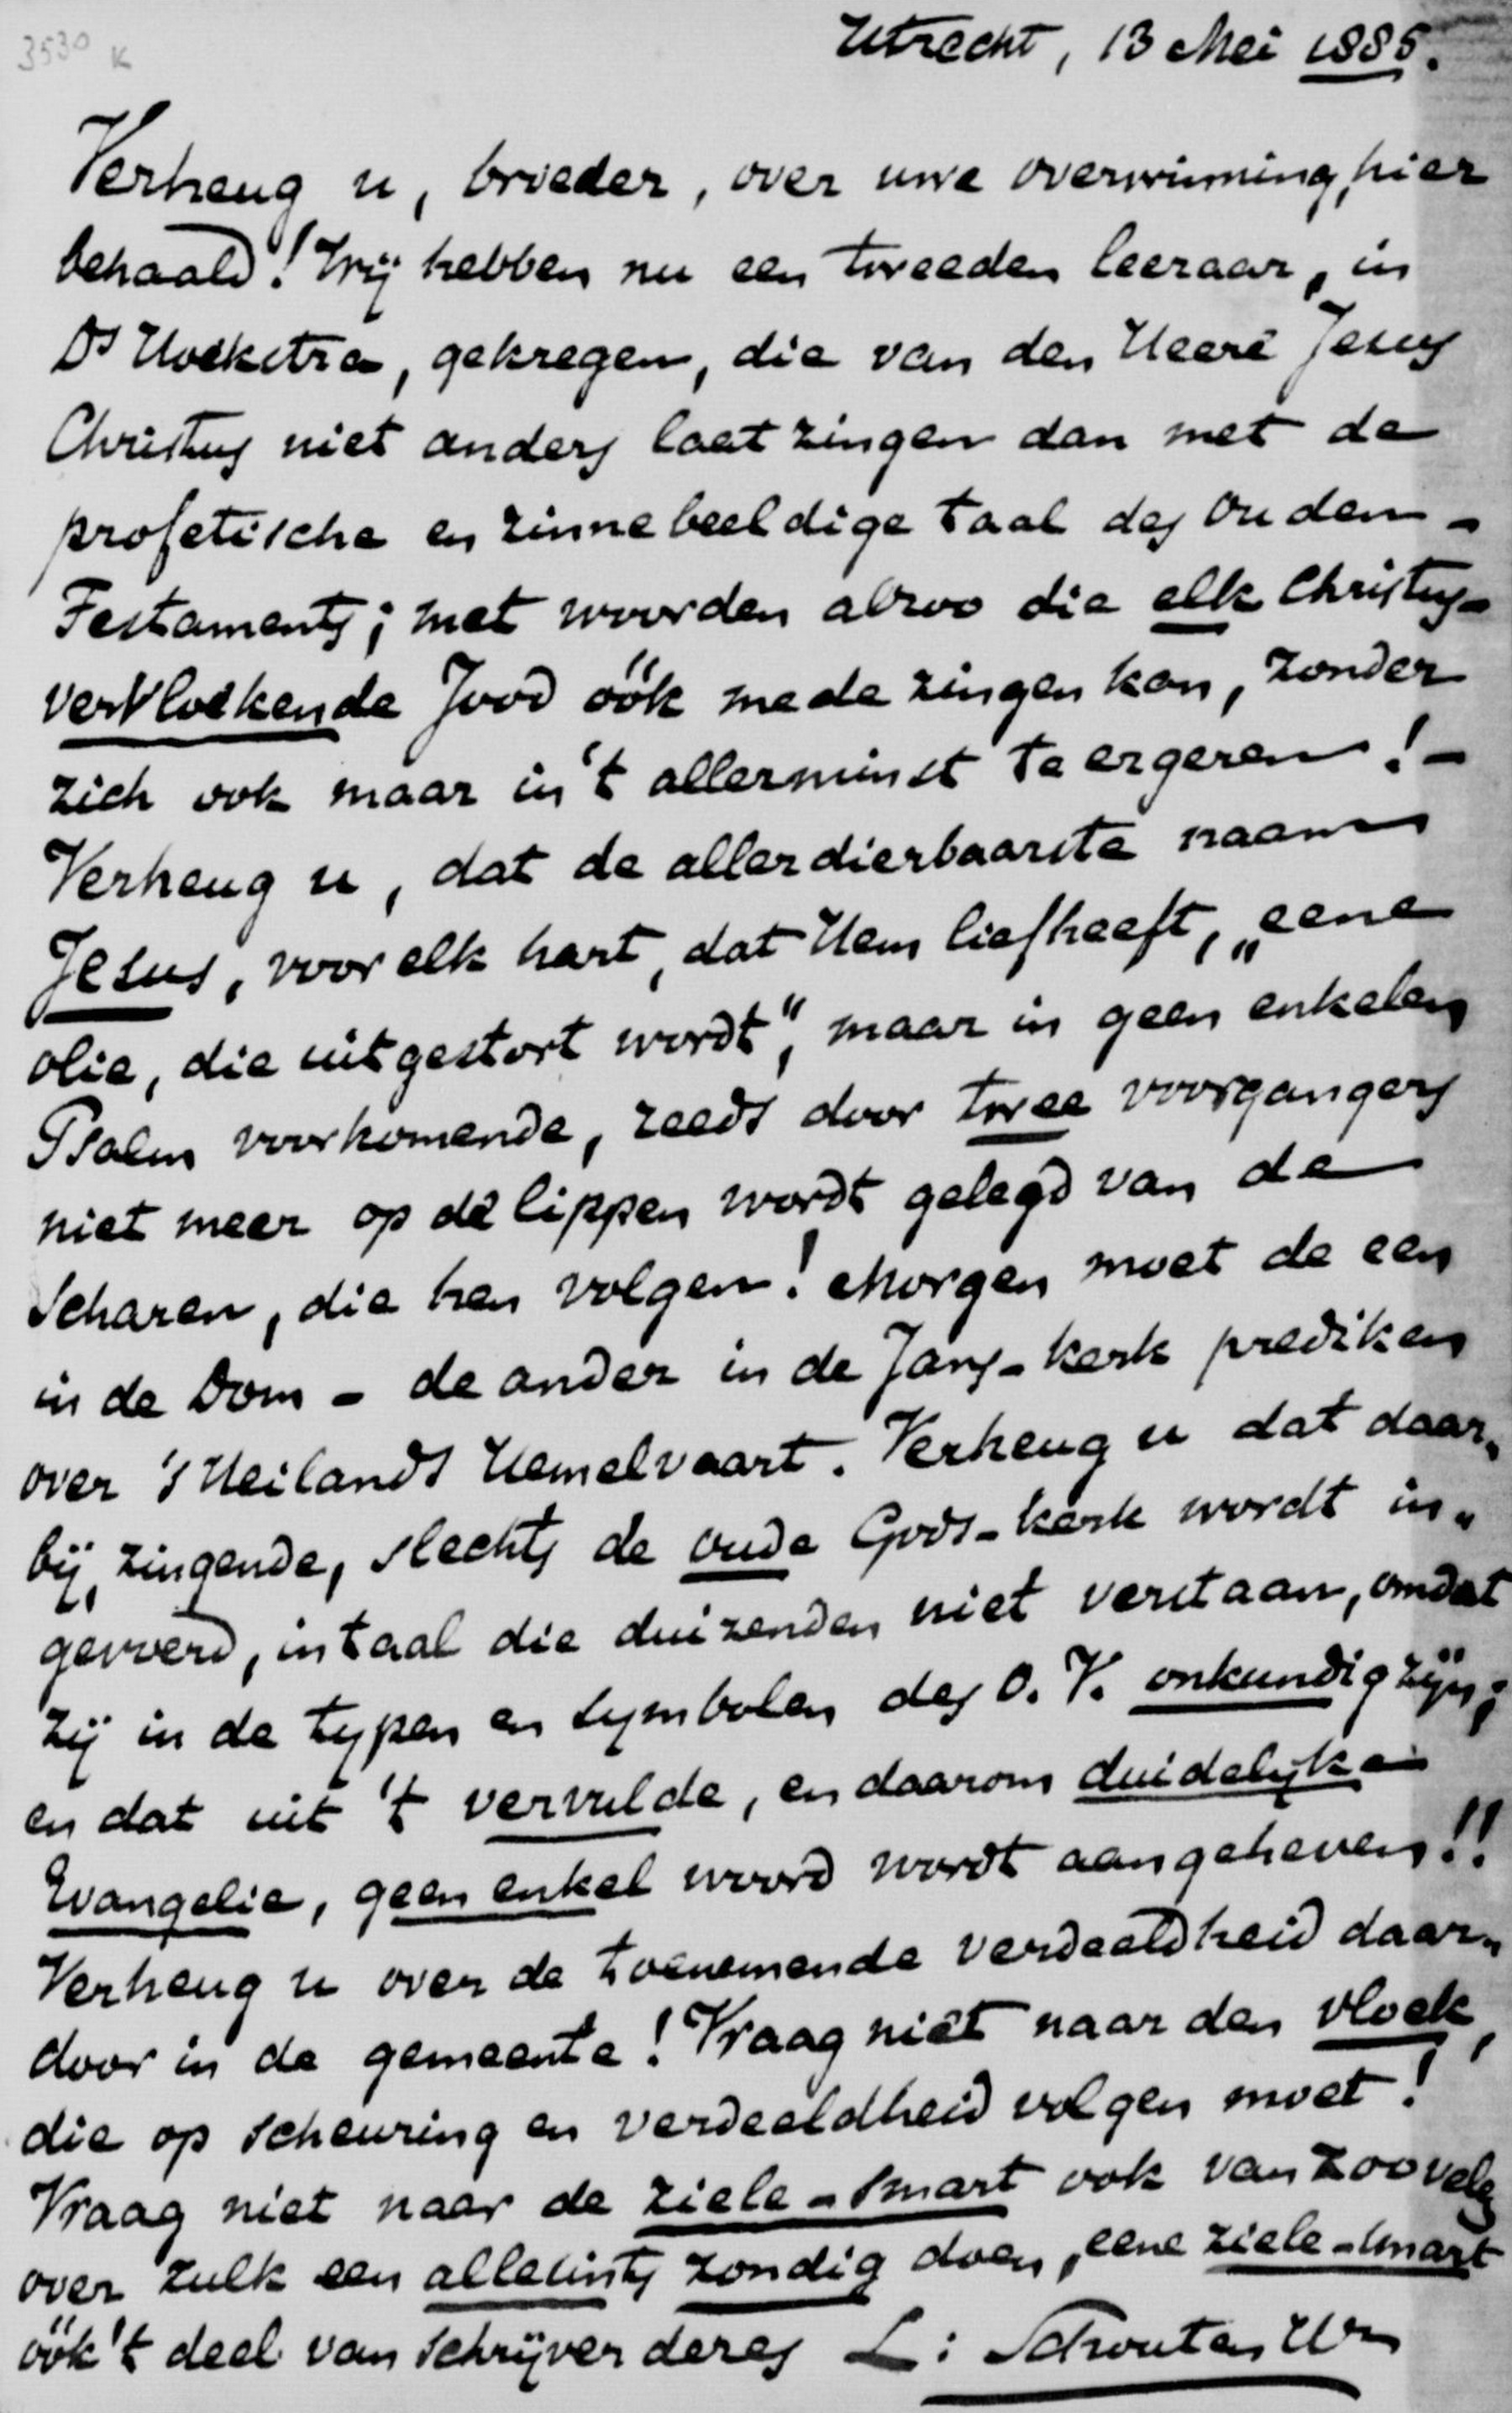 3530 K
Utrecht, 13 Mei 1885.
Verheug u, broeder, over uwe overwinning, hier
behaald! Wij hebben nu een tweeden leeraar, in
Ds Hoekstra, gekregen, die van den Heere Jesus
Christus niet anders laat zingen dan met de
profetische en zinnebeeldige taal des Ouden-
Testaments; met woorden alzoo die elk Christus-
vervloekende Jood óók mede zingen kan, zonder
zich ook maar in 't allerminst te ergeren! -
Verheug u, dat de allerdierbaarste naam
Jesus, voor elk hart, dat Hem liefheeft, „eene
olie, die uitgestort wordt", maar in geen enkelen
Psalm voorkomende, reeds door twee voorgangers
niet meer op de lippen wordt gelegd van de
Scharen, die hen volgen! Morgen moet de een
in de Dom - de ander in de Jans-kerk prediken
over 's Heilands Hemelvaart. Verheug u dat daar-
bij, zingende, slechts de oude Gods-kerk wordt in-
gevoerd, in taal die duizenden niet verstaan, omdat
zij in de typen en symbolen des O. V. onkundig zijn;
en dat uit 't vervulde, en daarom duidelijke
Evangelie, geen enkel woord wordt aangeheven!!
Verheug u over de toenemende verdeeldheid daar-
door in de gemeente! Vraag niet naar den vloek,
die op scheuring en verdeeldheid volgen moet!
Vraag niet naar de ziele-smart ook van zoovelen
over zulk een allesints zondig doen, eene ziele-smart
óók 't deel van schrijver dezes L: Schouten Hz